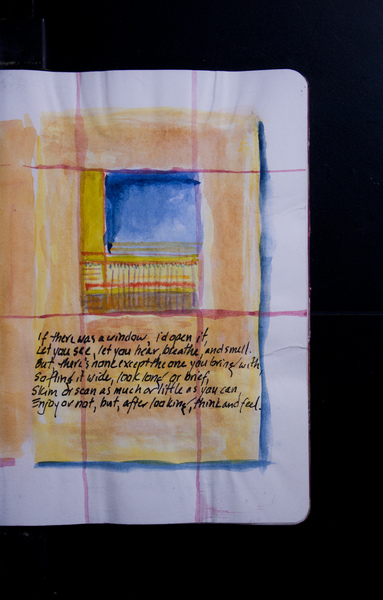 If there was a window, i'd open it,
Let you see, let you hear, breathe, and smell.
But, there's none except the one you bring with
So fling it wide, look long or brief,
Skim or scan as much or little as you can,
Enjoy or not, but, after looking, think and feel.